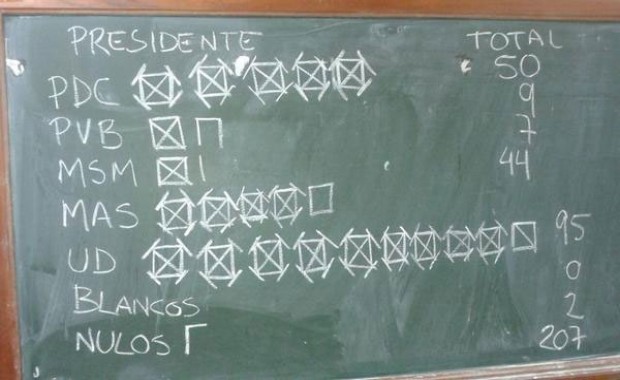 PRESIDENTE TOTAL
PDC 50
PVB 9
MSM 7
MAS 44
UD 95
BLANCOS 0
NULOS 2
207